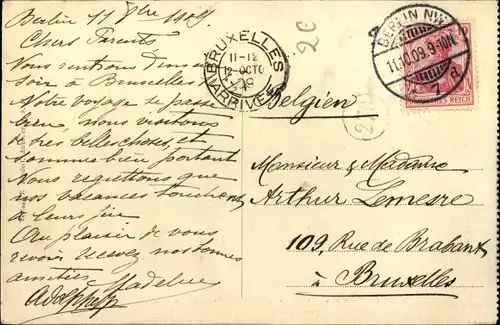 Berlin 11 8bre 1909.
Chers Parents,
Nous rentrons demain
soir à Bruxelles
Notre voyage se passe
bien, nous visitons
de très belles choses, et
sommes bien portant
Nous regrettons que
nos vacances touchent
à leur fin
Au plaisir de vous
revoir recevez nos bonnes
amitiés
Adolphe
BRUXELLES
11-12
12-OCTO
ARRIVÉE
BERLIN NW
11.10.09. 9-10N
7
DEUTSCHES REICH
Belgien
Monsieur & Madame
Arthur Lemesre
109, Rue de Brabant
à Bruxelles